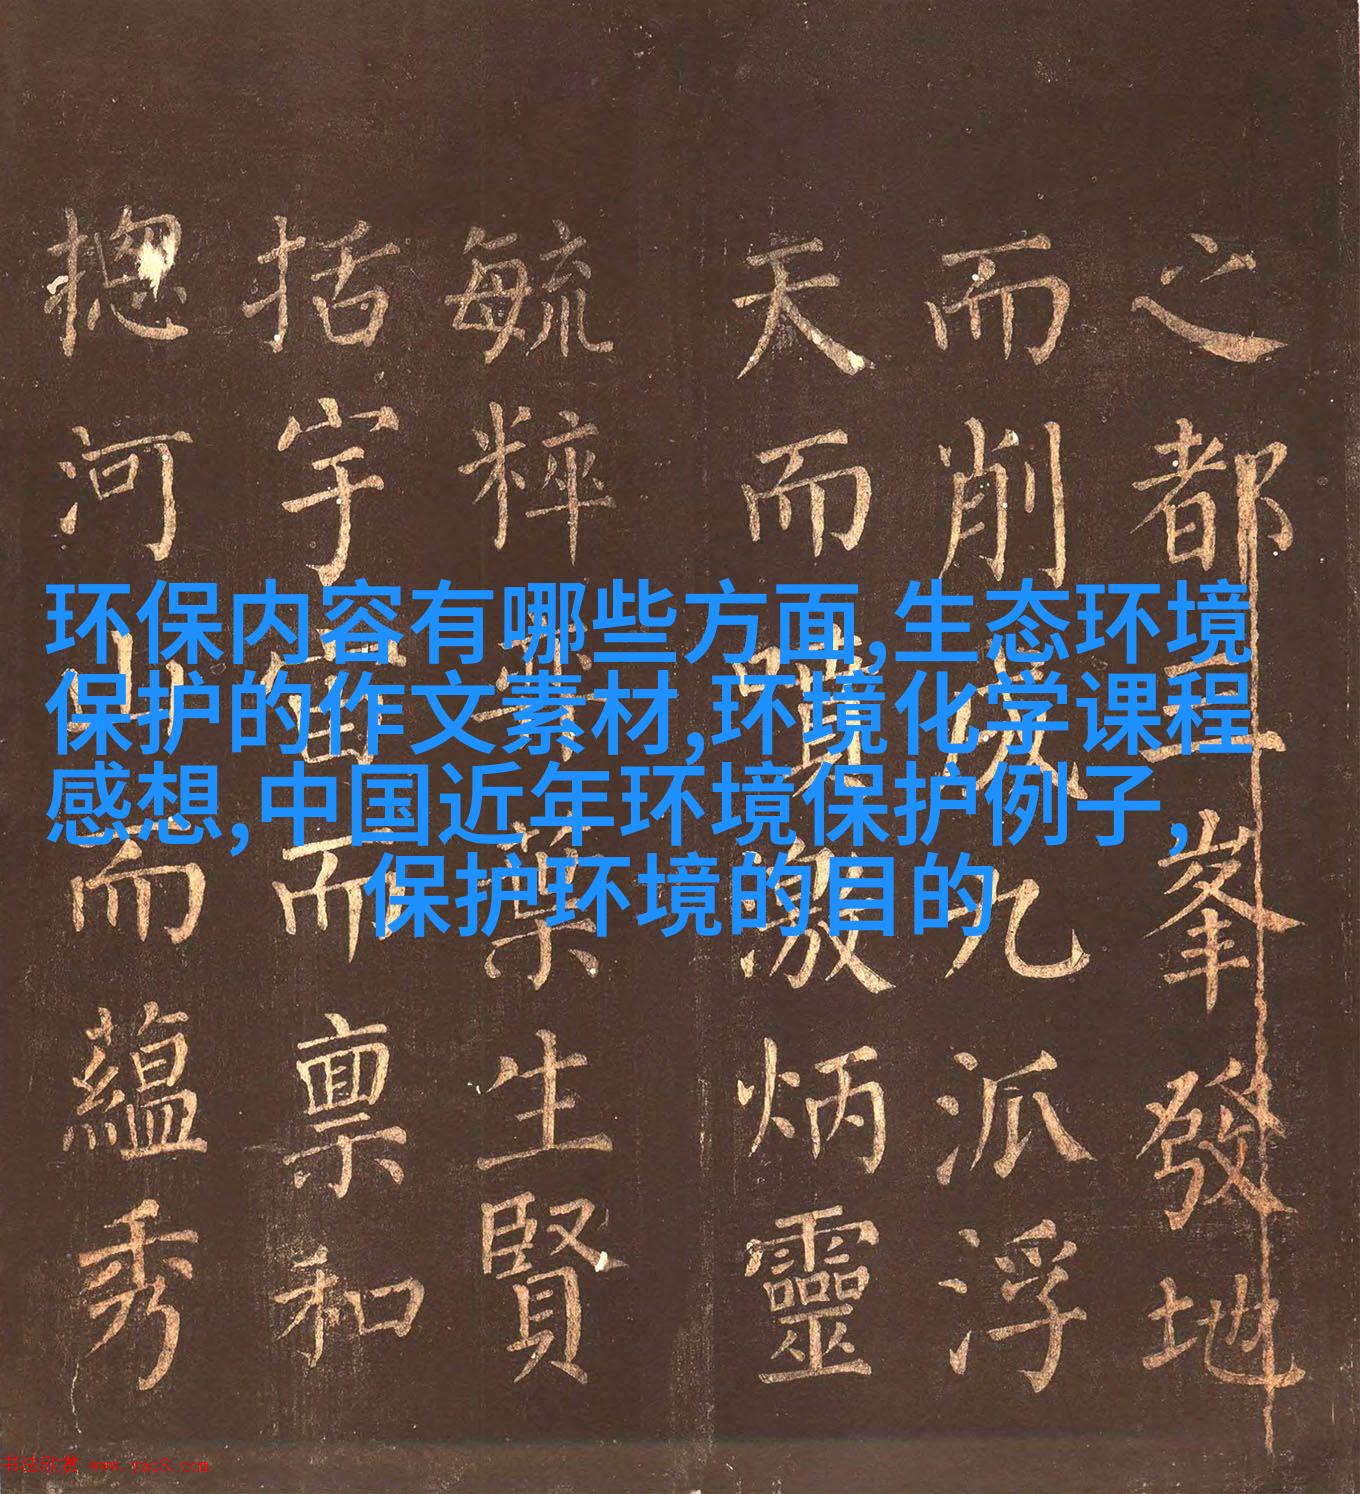 环保内容有哪些方面,生态环境
保护的作文素材,环境化学课程
感想,中国近年环境保护例子,
保护环境的目的
之都峯發地
而削九派浮
天而噴激炳靈
毓粹生賢
括宇宙而稟和
摠河山而蘊秀
书法欣赏 www.yac8.com